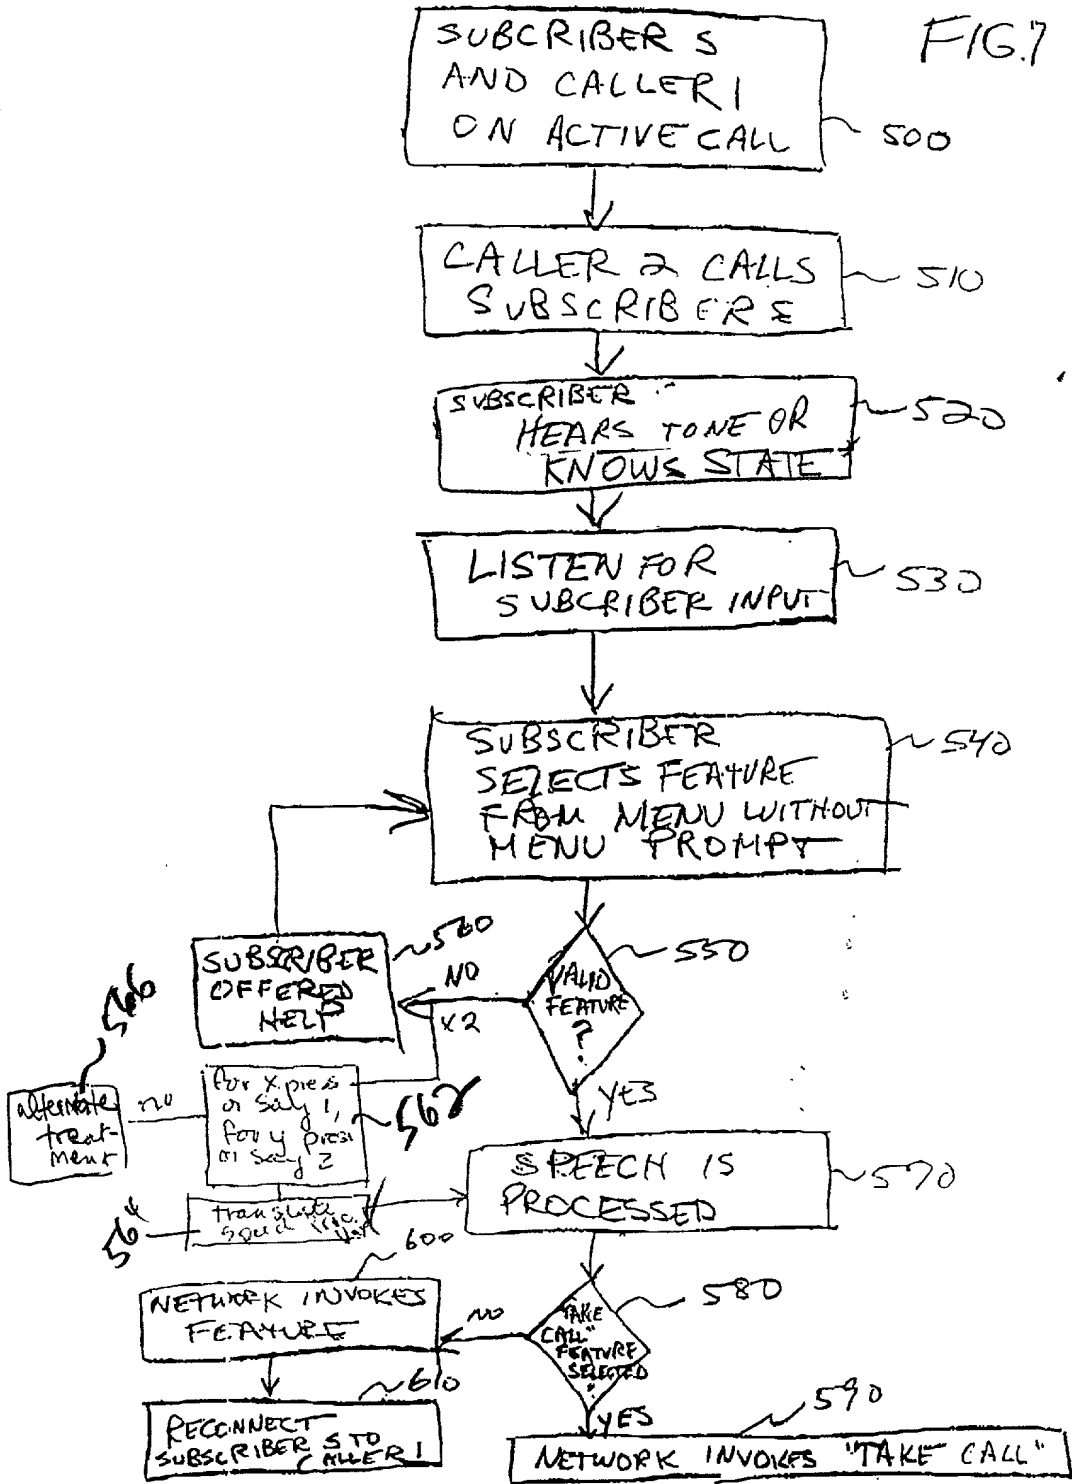 FIG.7
SUBCRIBER S
AND CALLER 1
ON ACTIVE CALL
500
CALLER 2 CALLS
SUBSCRIBER S
510
SUBSCRIBER
HEARS TONE OR
KNOWS STATE
520
LISTEN FOR
SUBCRIBER INPUT
530
SUBSCRIBER
SELECTS FEATURE
FROM MENU WITHOUT
MENU PROMPT
540
SUBSCRIBER
OFFERED
HELP
560
NO
X2
VALID
FEATURE
?
550
YES
566
alternate
treat-
ment
no
for x press
or say 1,
for y press
or say 2
562
translate
564
SPEECH IS
PROCESSED
570
600
NETWORK INVOKES
FEATURE
NO
"TAKE
CALL"
FEATURE
SELECTED
?
580
YES
610
RECONNECT
SUBSCRIBER S TO
CALLER 1
590
NETWORK INVOKES "TAKE CALL"